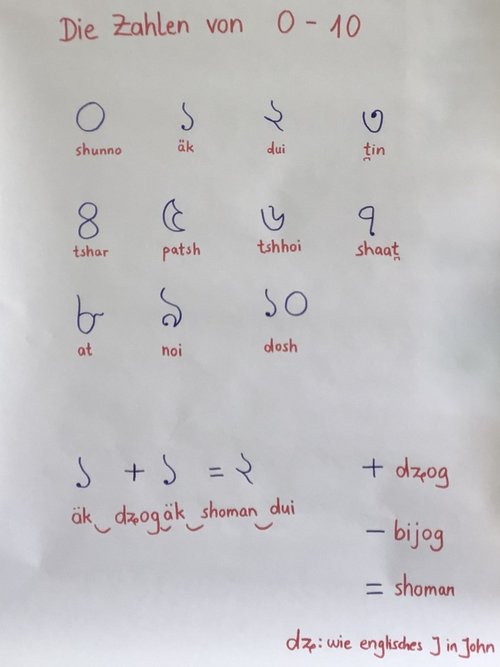 Die Zahlen von 0 - 10
০ ১ ২ ৩
shunno äk dui t̪in
৪ ৫ ৬ ৭
tshar patsh tshhoi shaat̪
৮ ৯ ১০
at noi dosh
১ + ১ = ২ + dʑog
äk‿dʑog‿äk‿shoman‿dui
− bijog
= shoman
dʑ: wie englisches J in John